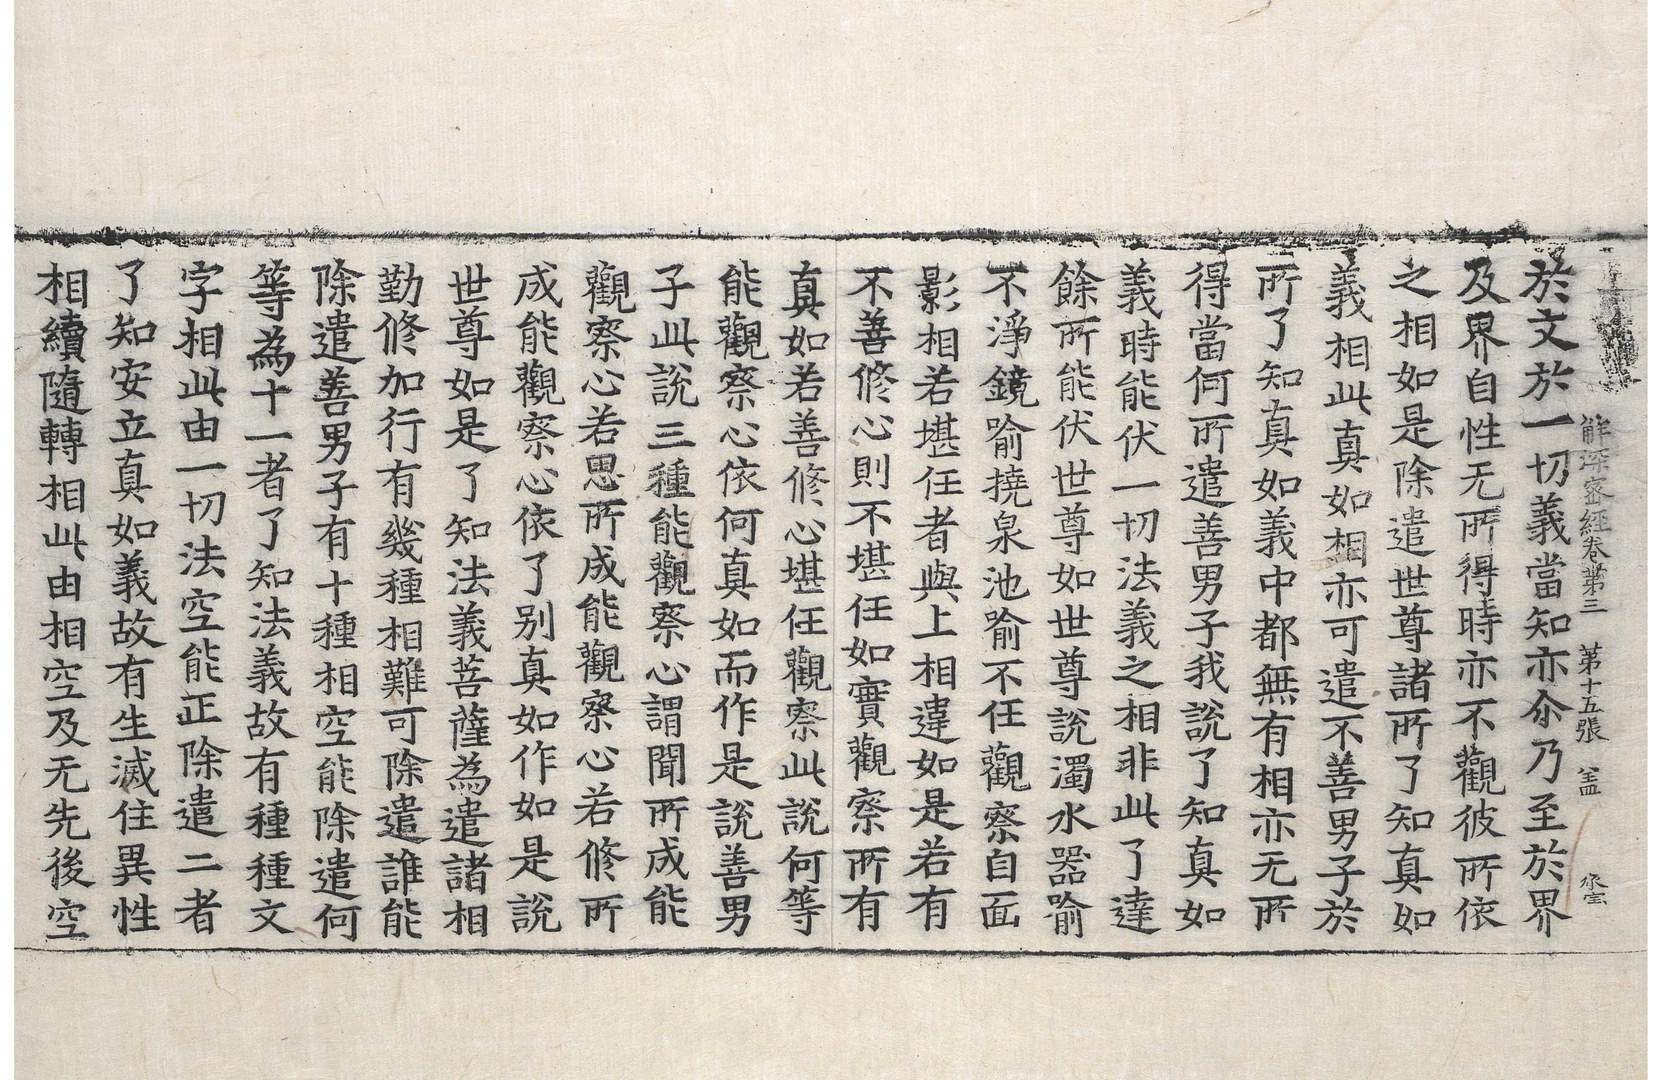 解深密經卷第三　第十五張　盖　永宝
於文於一切義當知亦尒乃至於界
及界自性无所得時亦不觀彼所依
之相如是除遣世尊諸所了知真如
義相此真如相亦可遣不善男子於
所了知真如義中都無有相亦无所
得當何所遣善男子我說了知真如
義時能伏一切法義之相非此了達
餘所能伏世尊如世尊說濁水器喻
不淨鏡喻撓泉池喻不任觀察自面
影相若堪任者與上相違如是若有
不善修心則不堪任如實觀察所有
真如若善修心堪任觀察此說何等
能觀察心依何真如而作是說善男
子此說三種能觀察心謂聞所成能
觀察心若思所成能觀察心若修所
成能觀察心依了別真如作如是說
世尊如是了知法義菩薩為遣諸相
勤修加行有幾種相難可除遣誰能
除遣善男子有十種相空能除遣何
等為十一者了知法義故有種種文
字相此由一切法空能正除遣二者
了知安立真如義故有生滅住異性
相續隨轉相此由相空及无先後空